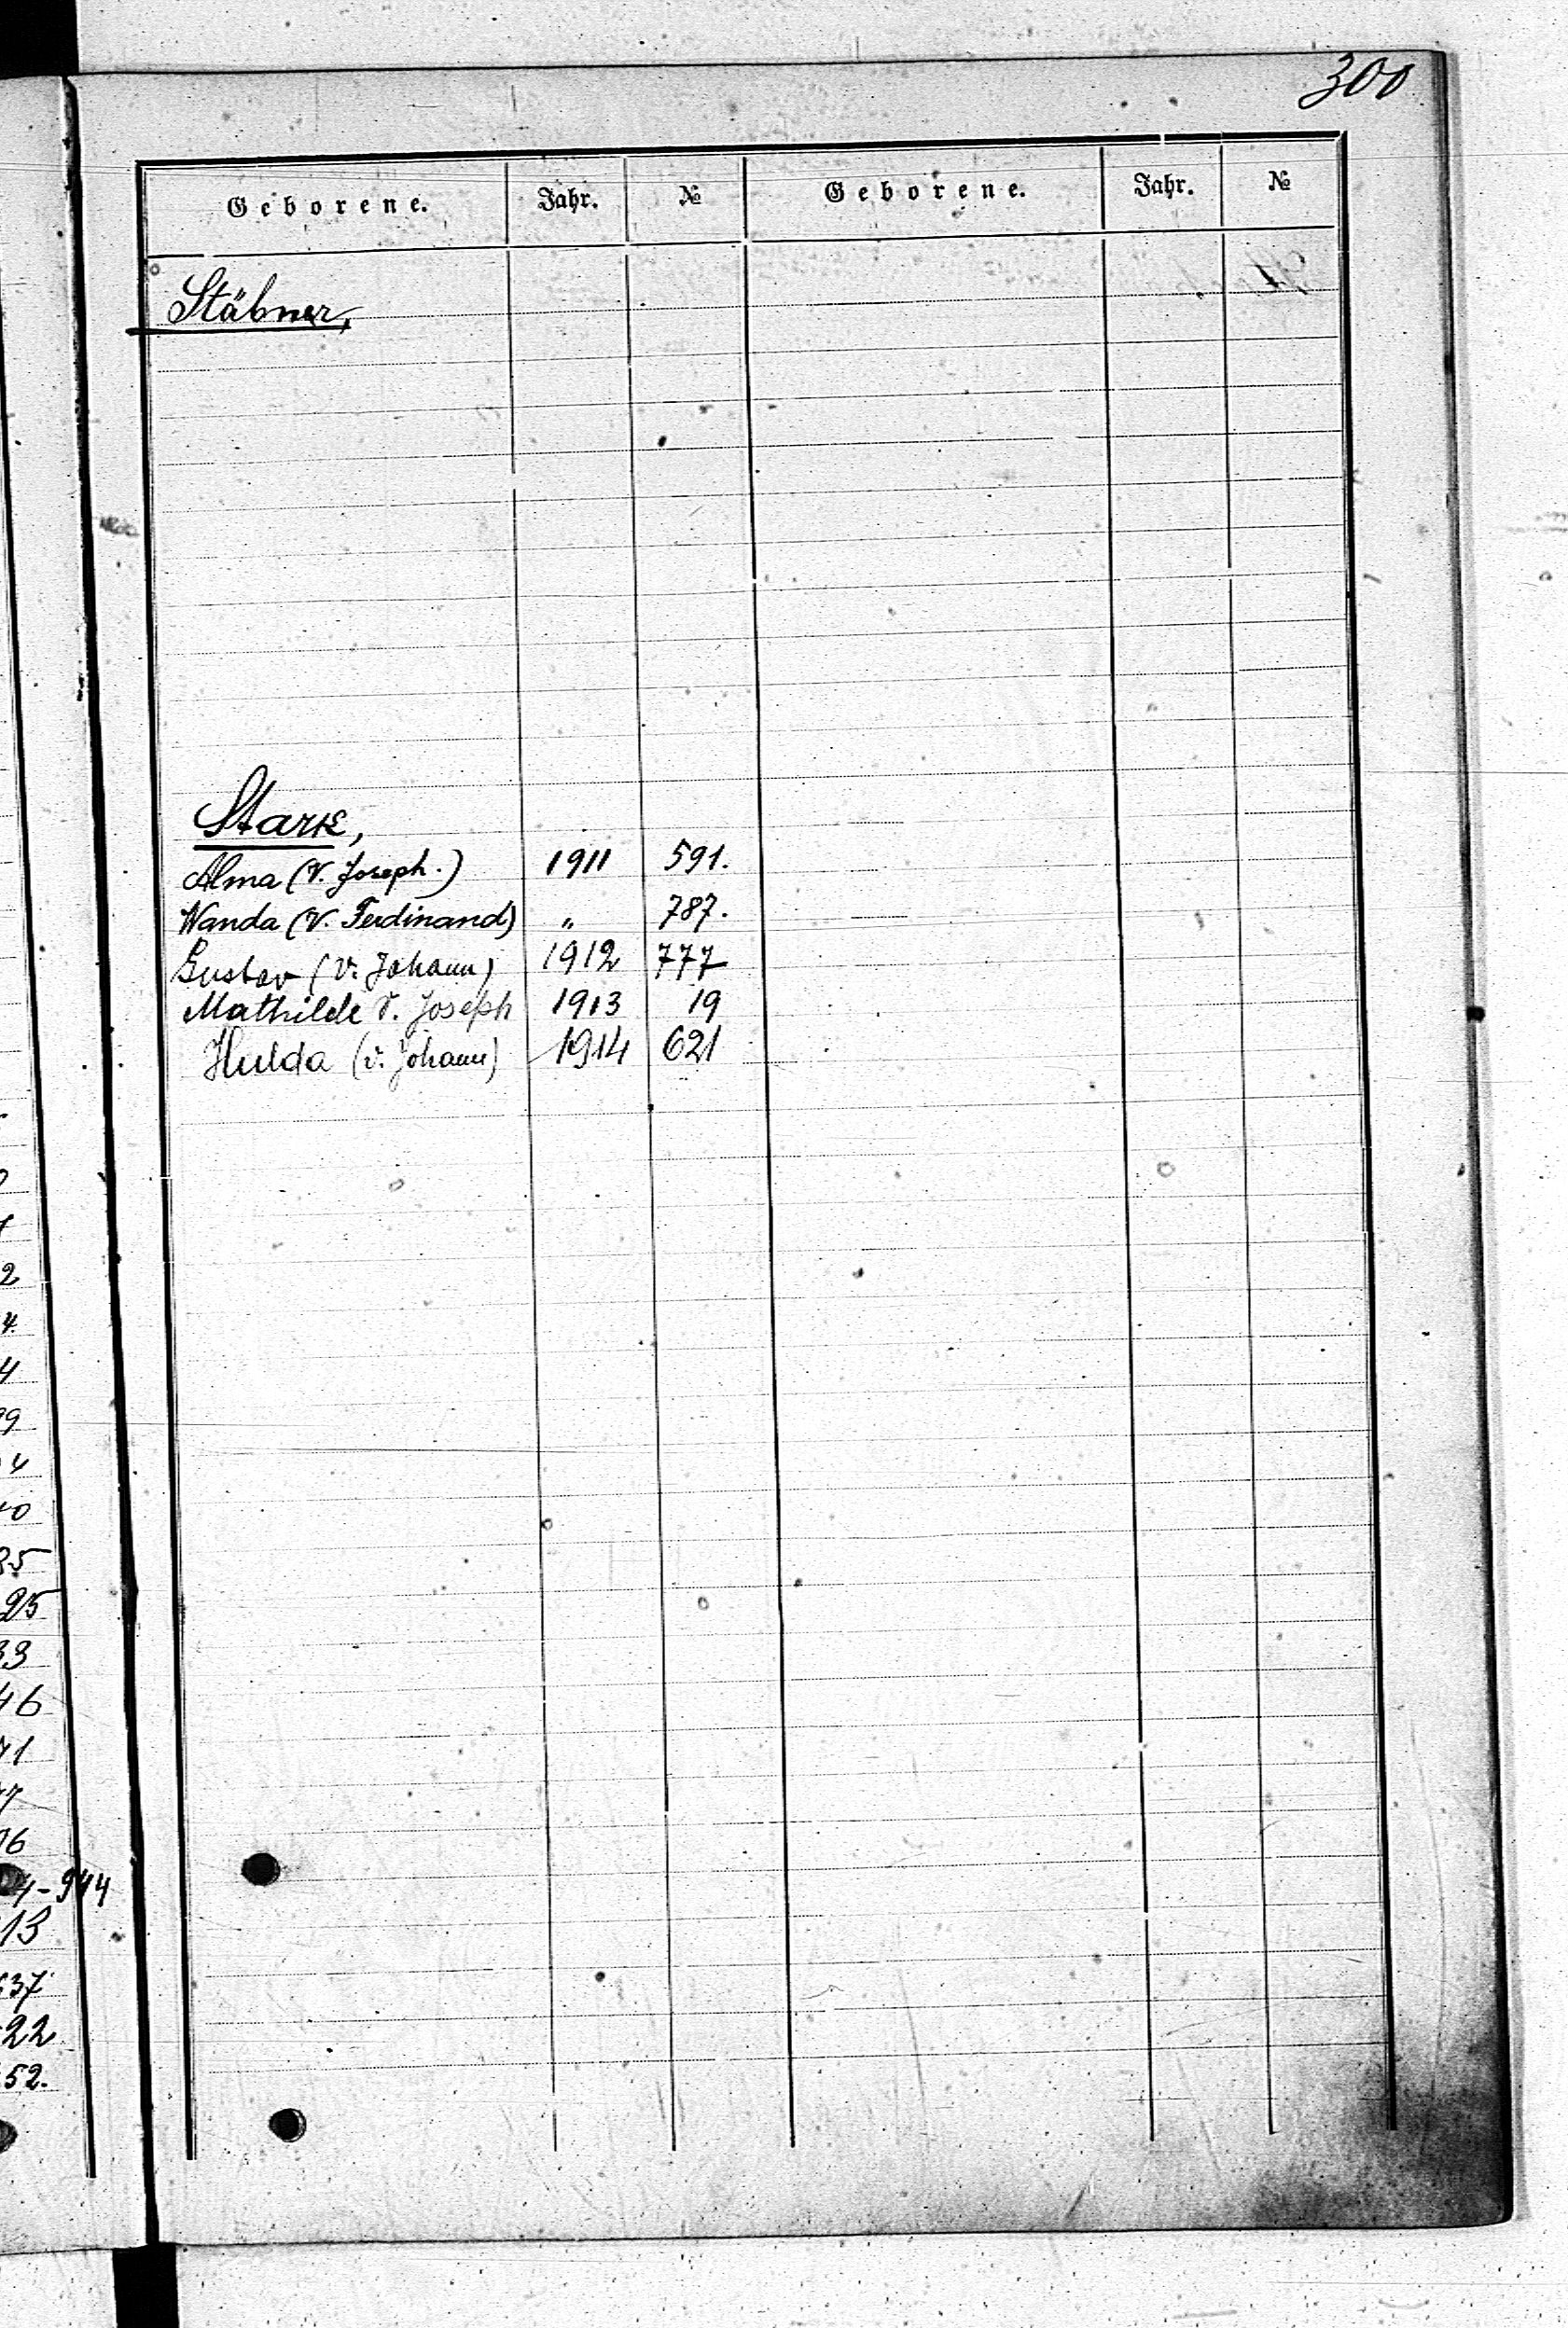 300
Geborene. Jahr. № Geborene. Jahr. №
Stäbner,
Stark,
Alma (V. Joseph.) 1911 591.
Wanda (V. Ferdinand) " 787.
Gustav (V. Johann) 1912 777
Mathilde V. Joseph 1913 19
Hulda (V. Johann) 1914 621
2
4.
4
9
4
0
35
25
33
46
71
7
16
4-944
13
37
22
52.